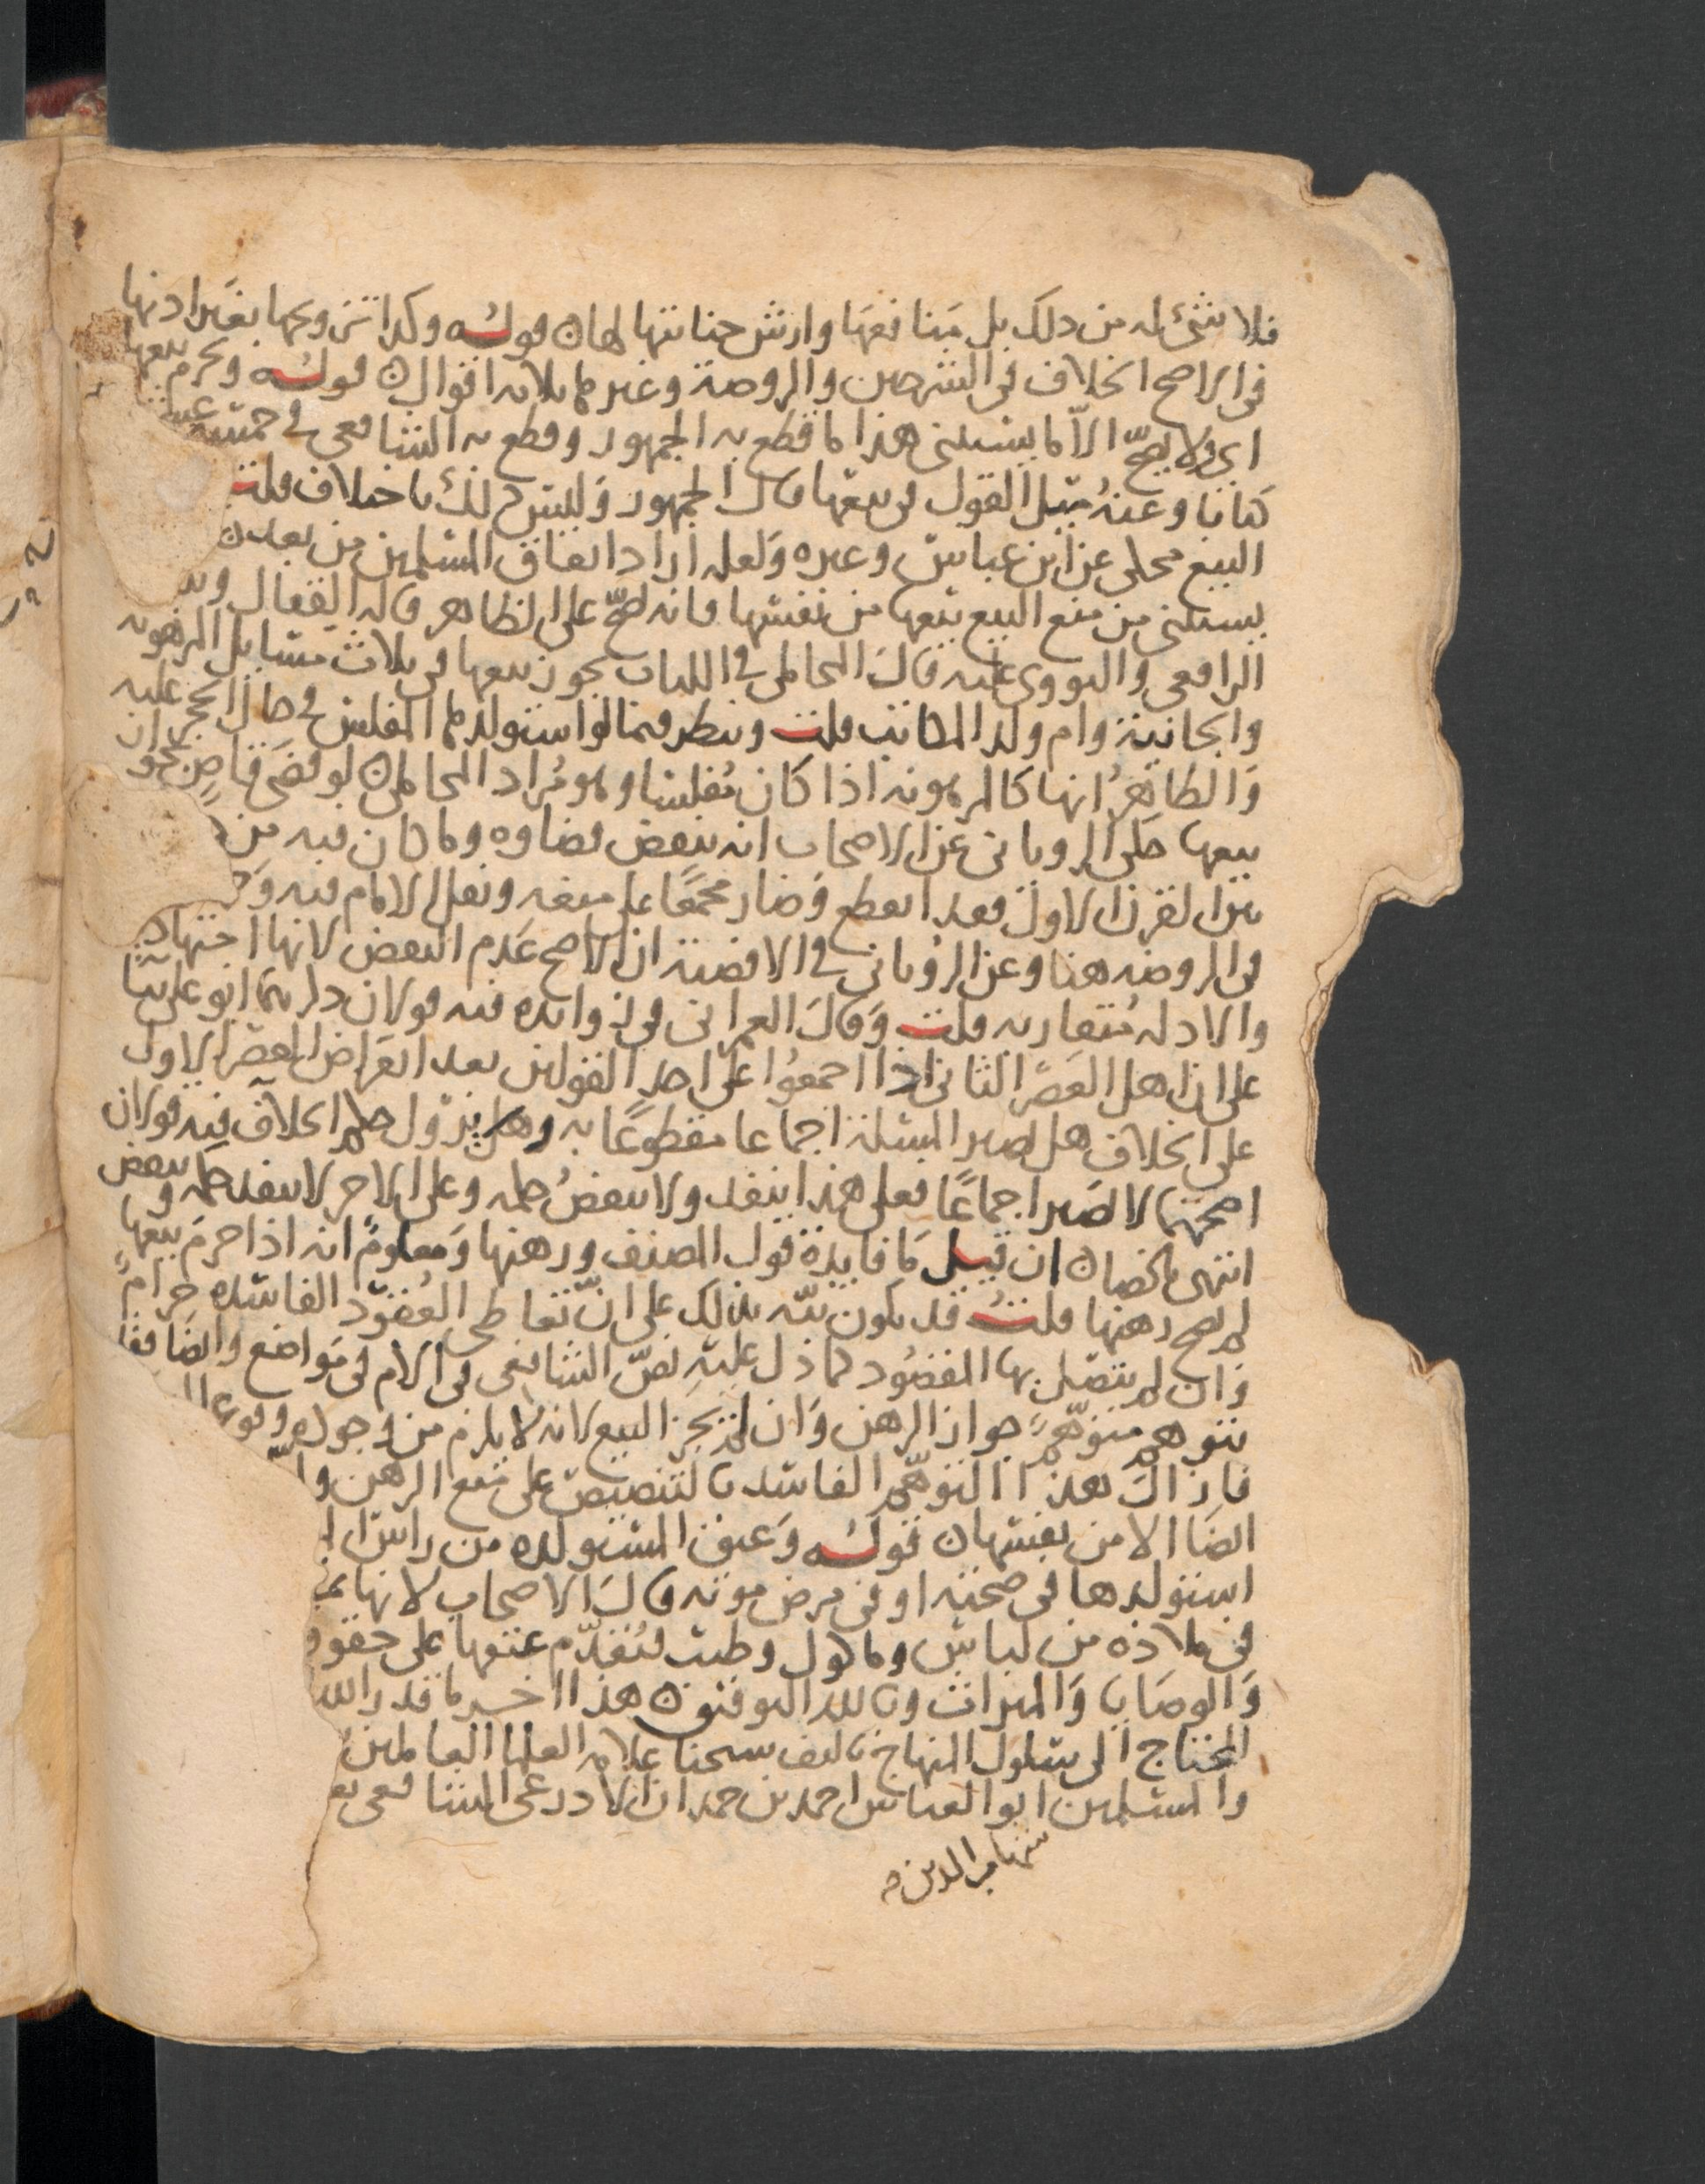 فلا شئ له من ذلك بل منافعها وارش جنايتها لها ن قوله وكذا تزويجها بغير اذنها
فى الاصح الخلاف فى الشرحين والروضة وغيرهما ثلاثه اقوال ن قوله ويحرم بيعها
اى ولا يصح الا ما يستثنى هذا ما قطع به الجمهور وقطع به الشافعى فى خمسة عشر
كتابا وعنه ميل القول فى بيعها قال الجمهور وليس ذلك باختلاف قلت
البيع محكى عن ابن عباس وغيره ولعله اراد اتفاق المسلمين من بعد ن
يستثنى من منع البيع بيعها من نفسها فانه يصح على الظاهر قاله القفال
الرافعى والنووى عليه قال المحاملى فى اللباب يجوز بيعها فى ثلاث مسايل المرهونه
والجانية وام ولد المكاتب قلت وينظر فيما لو استولدها المفلس فى حال الحجر عليه
والظاهر انها كالمرهونه اذا كان مفلسا وهو مراد المحاملى ن لو قضى قاض بجواز
بيعها حكى الرويانى عن الاصحاب انه ينقض قضاوه وما كان فيه من
بين القرن الاول فقد انقطع وصار مجمعا على منعه ونقل الامام فيه
فى الروضه هنا وعن الرويانى فى الاقضية ان الاصح عدم النقض لانها اجتهادية
والادله متقاربه قلت وقال العمرانى فى زوايده فيه قولان ذكرهما ابو على بنا
على ان اهل العصر الثانى اذا اجمعوا على احد القولين بعد انقراض العصر الاول
على الخلاف هل تصير المسئلة اجماعا مقطوعا به وهل يزول حكم الخلاف فيه قولان
اصحهما لا تصير اجماعا فعلى هذا ينفذ ولا ينقض حكمه وعلى الاخر لا ينفذ حكمه وينقض
انتهى ملخصا ن ان قيل ما فايدة قول المصنف ورهنها ومعلوم انه اذا حرم بيعها
لم يصح رهنها قلت قد يكون نبه بذلك على ان تعاطى العقود الفاسده حرام
وان لم يتصل بها المقصود كما دل عليه نص الشافعى فى الام فى مواضع وايضا فقد
يتوهم متوهم جواز الرهن وان لم يجز البيع لانه لا يلزم من وجوده وقوع
فازال هذا التوهم الفاسد بالتنصيص على منع الرهن
ايضا الا من نفسها ن قوله وعتق المستولده من راس
استولدها فى صحته او فى مرض موته قال الاصحاب لانها
فى ملاذه من لباس وماكول وطيب فتقدم عتقها على حقوق
والوصايا والميراث وبالله التوفيق ن هذا اخر ما قدر الله
المحتاج الى سلوك المنهاج تاليف شيخنا علامه العلما العالمين
والمسلمين ابو العباس احمد بن حمدان الاذرعى الشافعى
شهاب الدين